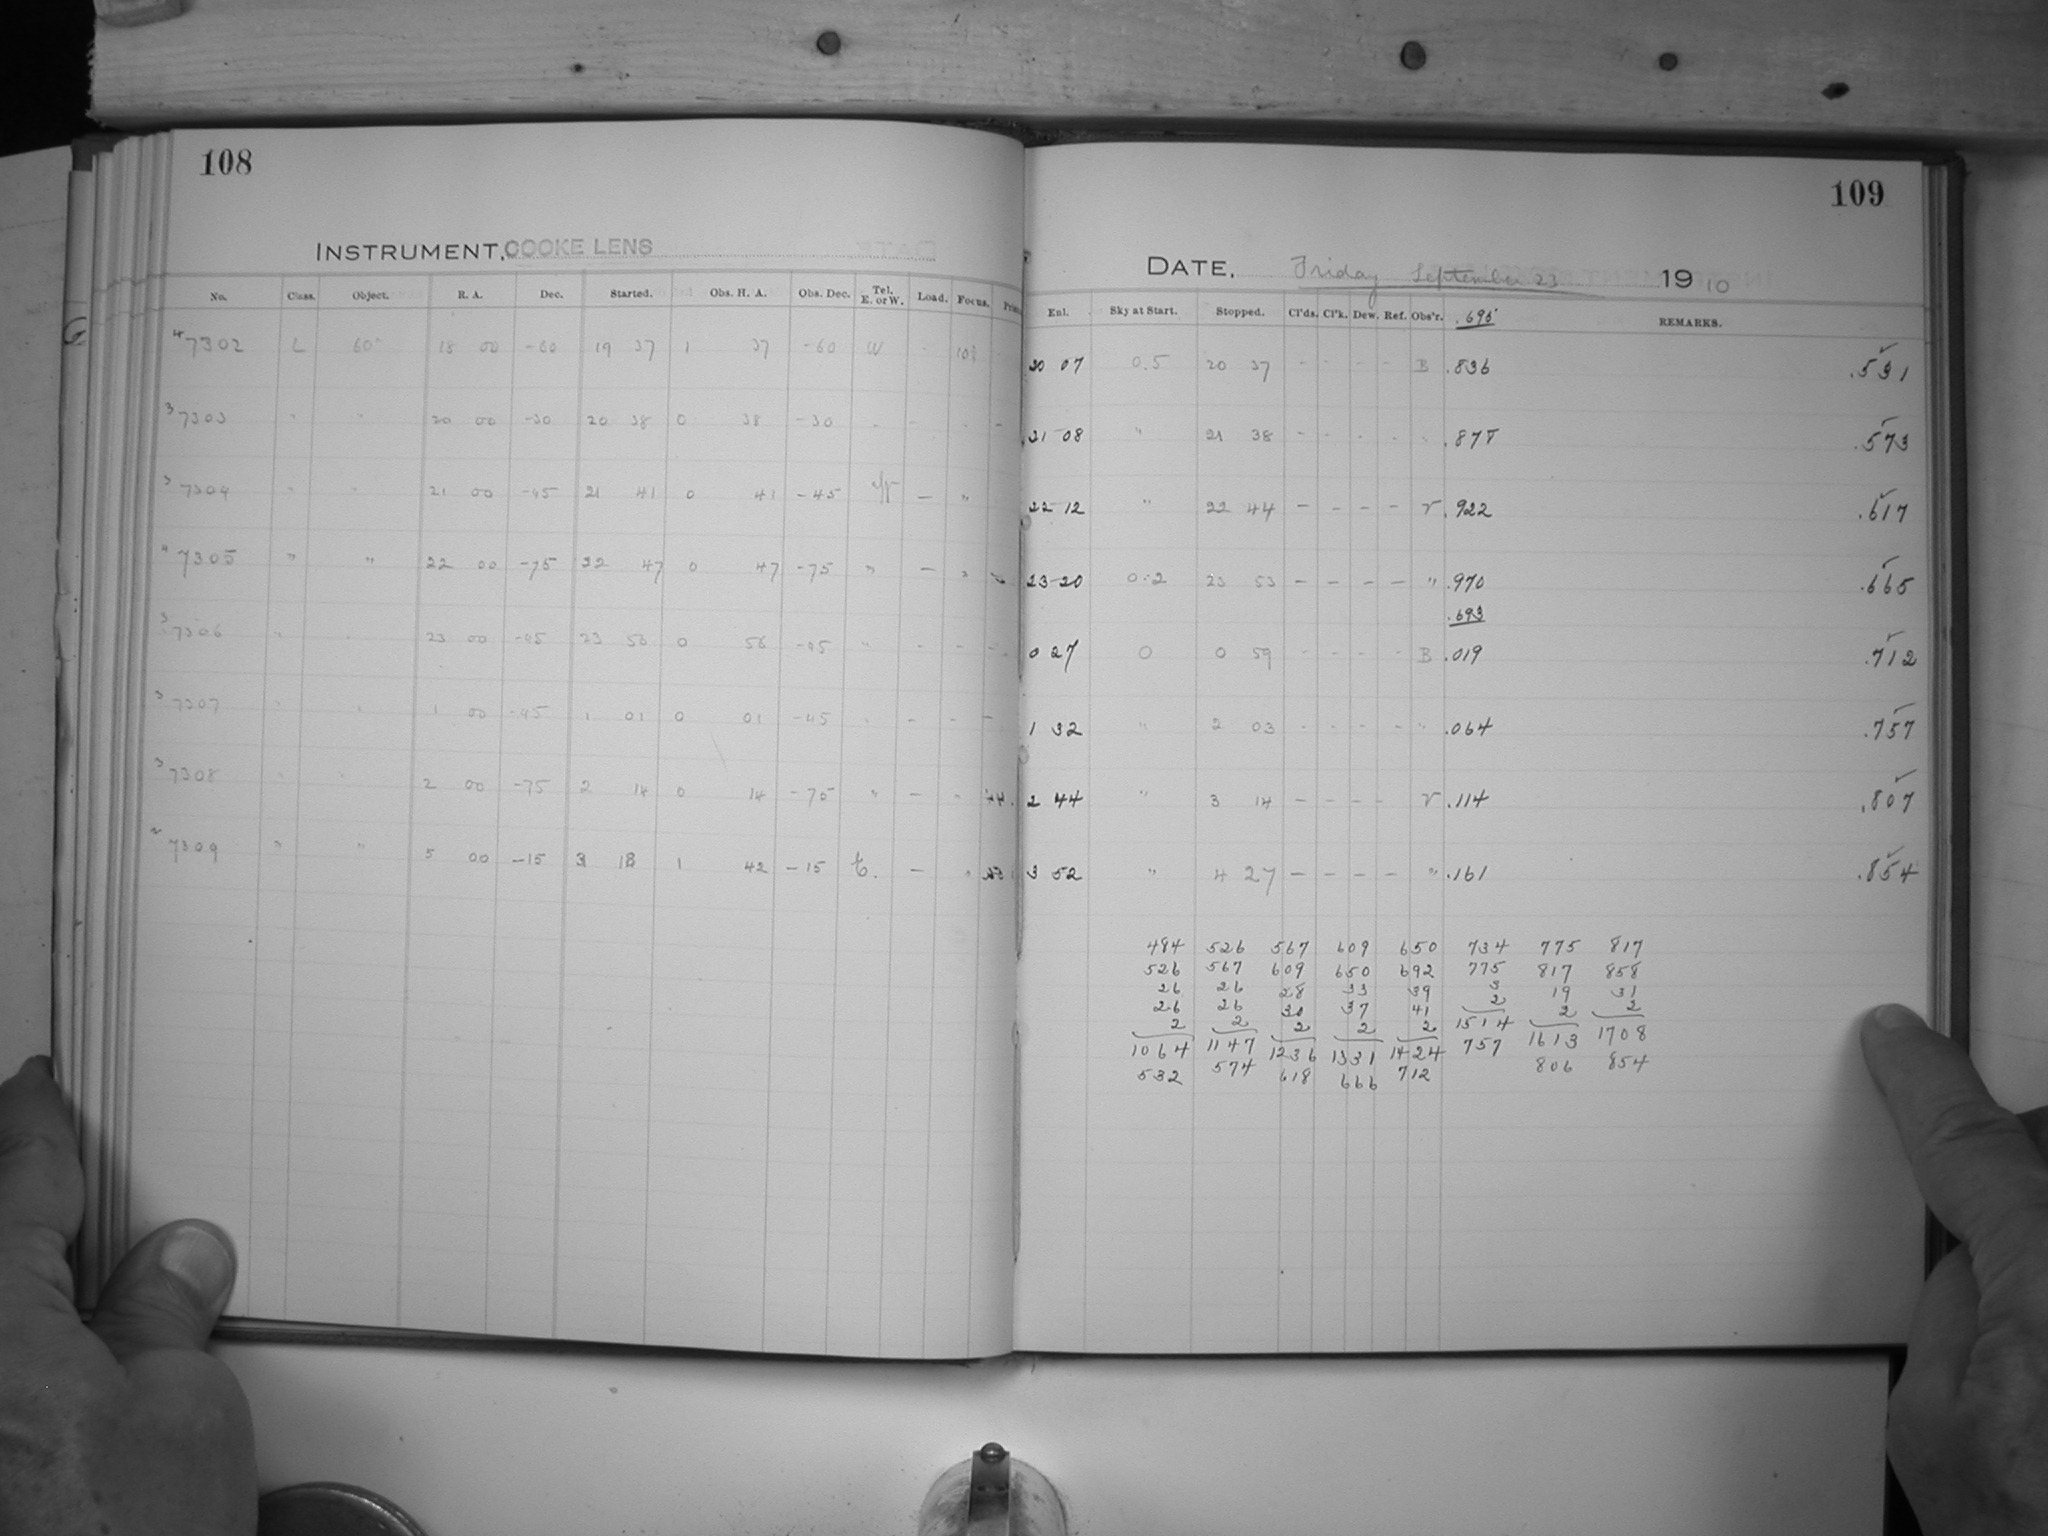 108
INSTRUMENT, COOKE LENS
No. Class. Object. R. A. Dec. Started. Obs. H. A. Obs. Dec. Tel. E. or W. Load. Focus.
4 7302 L 60m 18 00 -60 19 37 1 37 -60 W -
3 7303 " " 20 00 -30 20 38 0 38 -30 - - - -
3 7304 " " 21 00 -45 21 41 0 41 -45 — "
4 7305 " " 22 00 -75 22 47 0 47 -75 " — "
3 7306 " " 23 00 -45 23 56 0 56 -45 " - - -
3 7307 " " 1 00 -45 1 01 0 01 -45 " - - -
3 7308 " " 2 00 -75 2 14 0 14 -75 " — "
2 7309 " " 5 00 -15 3 18 1 42 -15 E. — "
109
DATE, Friday September 23 1910
Enl. Sky at Start. Stopped. Cl'ds. Cl'k. Dew. Ref. Obs'r. .695 REMARKS.
20 07 0.5 20 37 - - - - B .836 .531
21 08 " 21 38 - - - - " .573
22 12 " 22 44 - - - - V .922 .617
23 20 0.2 23 53 - - - - " .970 .665
.693
0 27 0 0 59 - - - - B .019 .712
1 32 " 2 03 - - - - " .064 .757
2 44 " 3 14 - - - - V .114 .807
3 52 " 4 27 - - - - " .161 .854
484 526 567 609 650 734 775 817
526 567 609 650 692 775 817 858
26 26 28 33 39 3 19 31
26 26 30 37 41 2 2 2
2 2 2 2 2 1514 1613 1708
1064 1147 1236 1331 1424 757 806 854
532 574 618 666 712